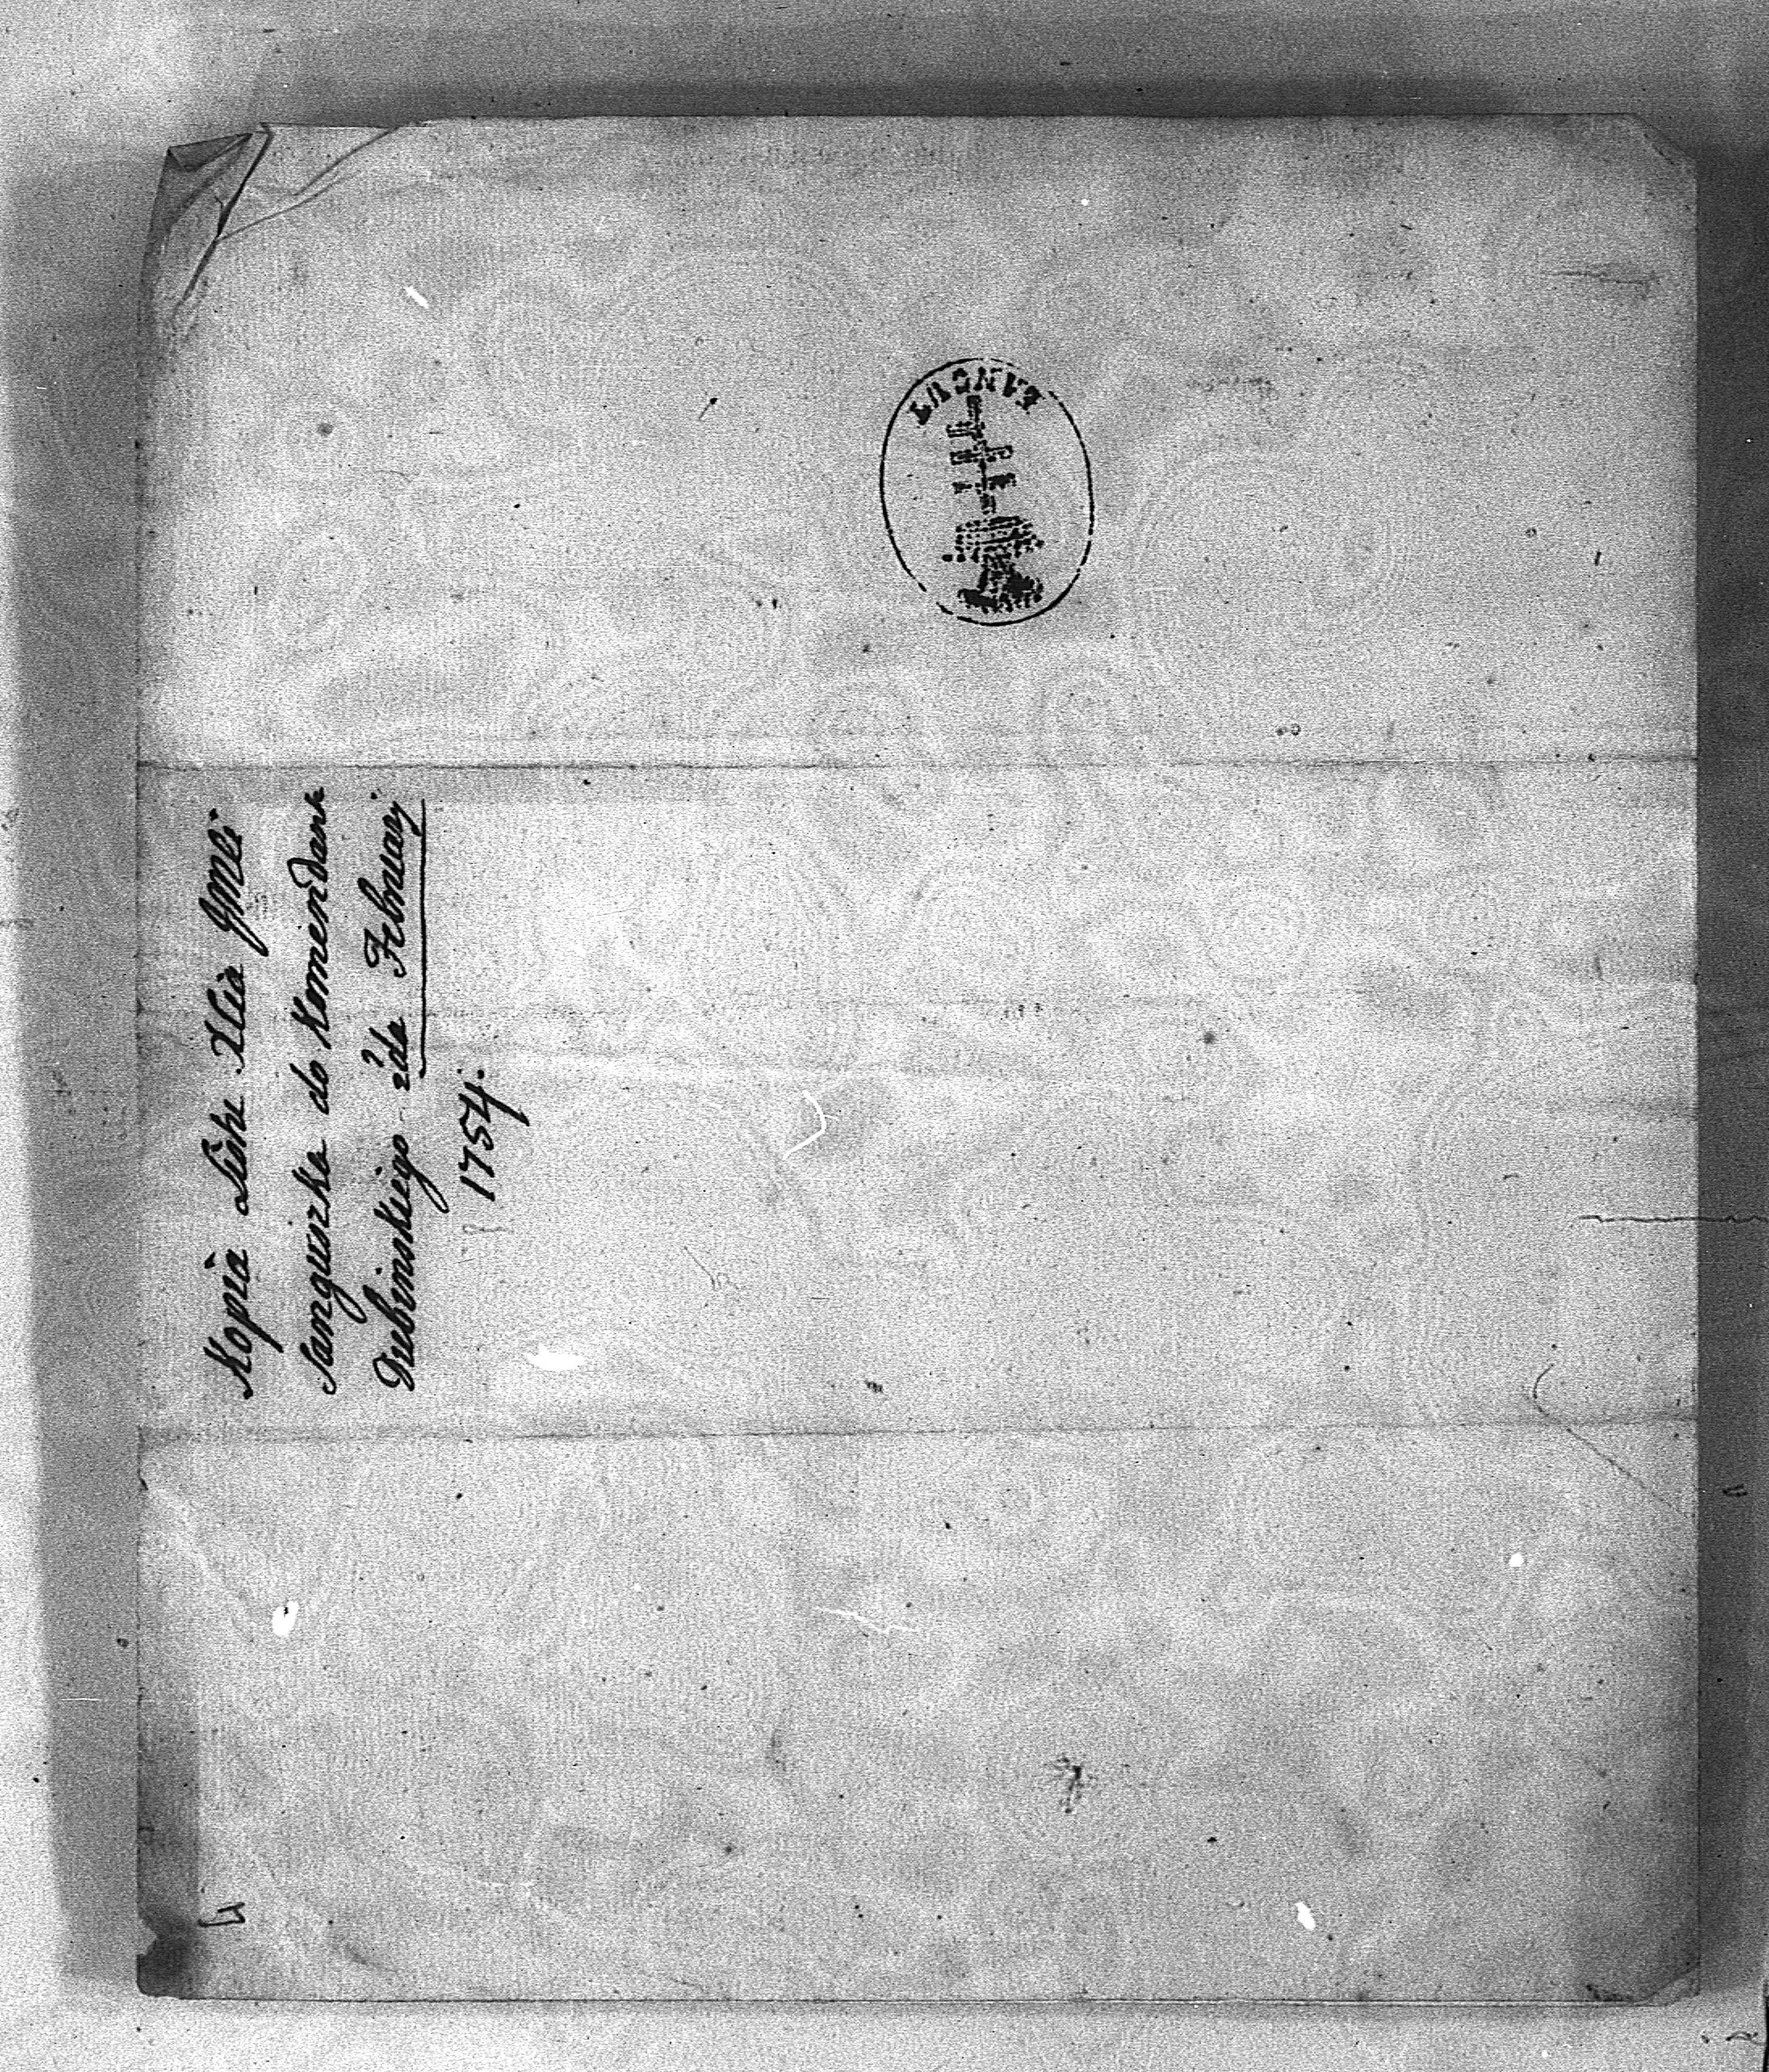 Kopia Listu Xcia JMci
Sanguszka do Komendant
Dubinskiego 2da Februarij
1754.
ŁAŃCUT
4